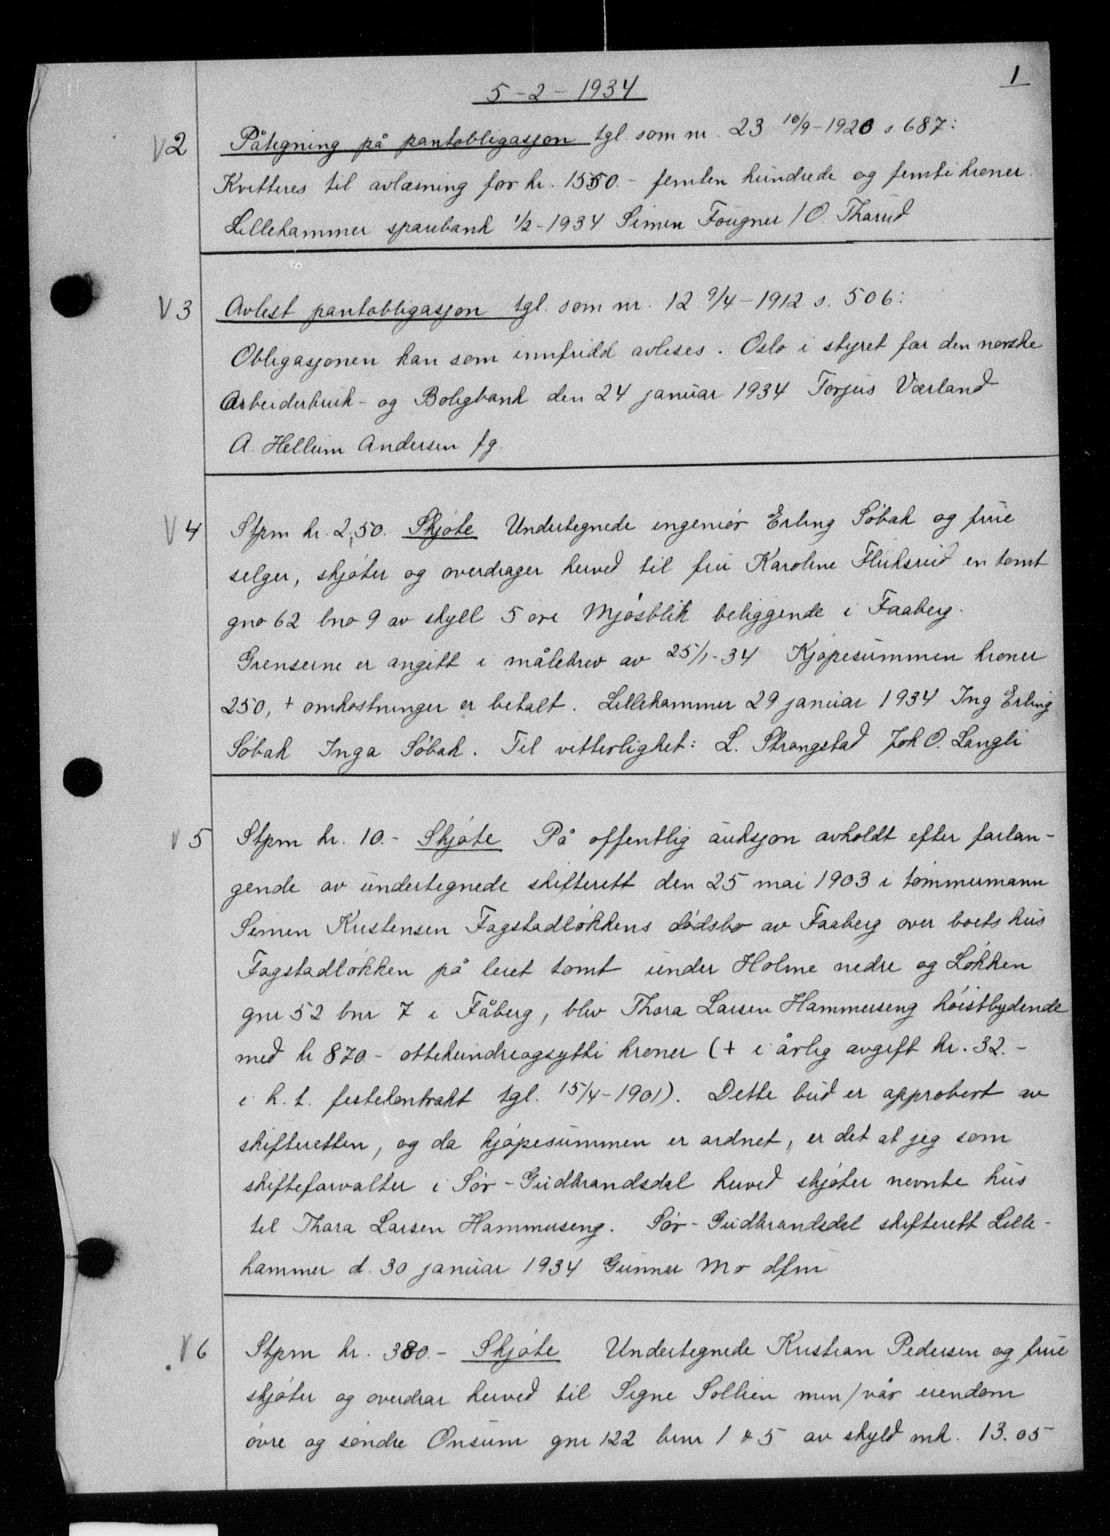 1
5-2-1934
V2 Påtegning på pantobligasjon tgl. som nr. 23 10/9-1920 s. 687:
Kvitteres til avlæsning for kr. 1550.- femten hundrede og femti kroner.
Lillehammer sparebank 1/2-1934 Simen Fougner / O. Tharud
V3 Avlest pantobligasjon tgl. som nr. 12 9/4-1912 s. 506:
Obligasjonen kan som innfridd avleses. Oslo i styret for den norske
Arbeiderbruk- og Boligbank den 24 januar 1934 Torjus Værland
A. Hellum Andersen fg.
V4 Stpm kr. 2,50. Skjøte Undertegnede ingeniør Erling Søbak og frue
selger, skjøter og overdrager herved til fru Karoline Fliksrud en tomt
gno 62 bno 9 av skyll 5 øre Mjøsblik beliggende i Faaberg.
Grenserne er angitt i målebrev av 25/1-34 Kjøpesummen kroner
250, + omkostninger er betalt. Lillehammer 29 januar 1934 Ing Erling
Søbak Inga Søbak. Til vitterlighet: L. Strangstad Joh O. Langli
V5 Stpm kr. 10.- Skjøte På offentlig auksjon avholdt efter forlan-
gende av undertegnede skifterett den 25 mai 1903 i tømmermann
Simen Kristensen Fagstadløkkens dødsbo av Faaberg over boets hus
Fagstadløkken på leiet tomt under Holme nedre og Løkken
gnr 52 bnr 7 i Fåberg, blev Thora Larsen Hammerseng høistbydende
med kr 870- ottehundreogsytti kroner (+ i årlig avgift kr. 32.-
i h. t. festekontrakt tgl. 15/4-1901). Dette bud er approbert av
skifteretten, og da kjøpesummen er ordnet, er det at jeg som
skifteforvalter i Sør-Gudbrandsdal herved skjøter nevnte hus
til Thora Larsen Hammerseng. Sør-Gudbrandsdal skifterett Lille-
hammer d. 30 januar 1934 Gunnar Mo dfm
V6 Stpm kr. 380.- Skjøte Undertegnede Kristian Pedersen og frue
skjøter og overdrar herved til Signe Sollien min/vår eiendom
øvre og søndre Onsum gnr 122 bnr 1 & 5 av skyld mk. 13.05